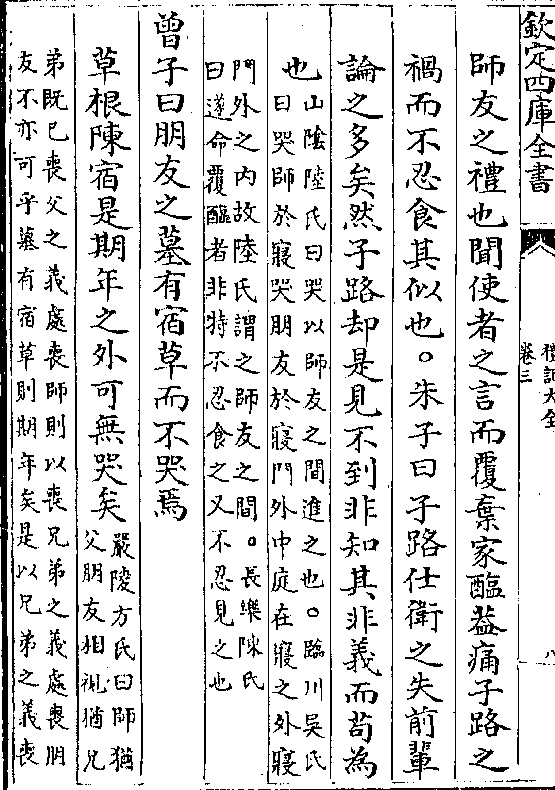 欽定四庫全書
禮記大全
卷三
八
師友之禮也聞使者之言而覆棄家醢蓋痛子路之
禍而不忍食其似也。朱子曰子路仕衛之失前輩
論之多矣然子路却是見不到非知其非義而苟為
也
山陰陸氏曰哭以師友之間進之也。臨川吳氏
曰哭師於寢哭朋友於寢門外中庭在寢之外寢
門外之内故陸氏謂之師友之間。長樂陳氏
曰遂命覆醢者非特不忍食之又不忍見之也
曾子曰朋友之墓有宿草而不哭焉
草根陳宿是期年之外可無哭矣
嚴陵方氏曰師猶
父朋友相視猶兄
弟既已喪父之義處喪師則以喪兄弟之義處喪朋
友不亦可乎墓有宿草則期年矣是以兄弟之義喪